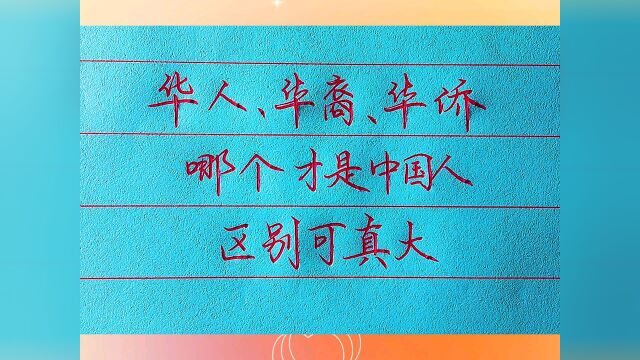 华人、华裔、华侨
哪个才是中国人
区别可真大